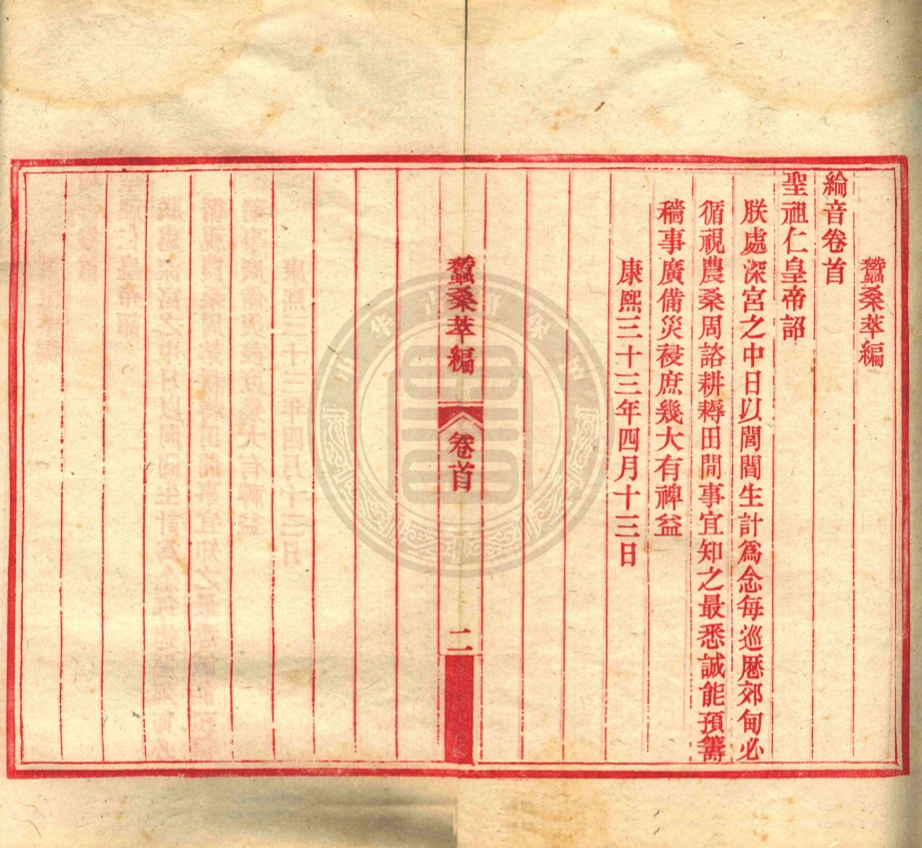 蠶桑萃編
綸音卷首
聖祖仁皇帝詔
朕處深宮之中日以閭閻生計爲念每巡厯郊甸必
循視農桑周諮耕耨田間事宜知之最悉誠能預籌
穡事廣備災祲庶幾大有裨益
康熙三十三年四月十三日
蠶桑萃編
卷首
二